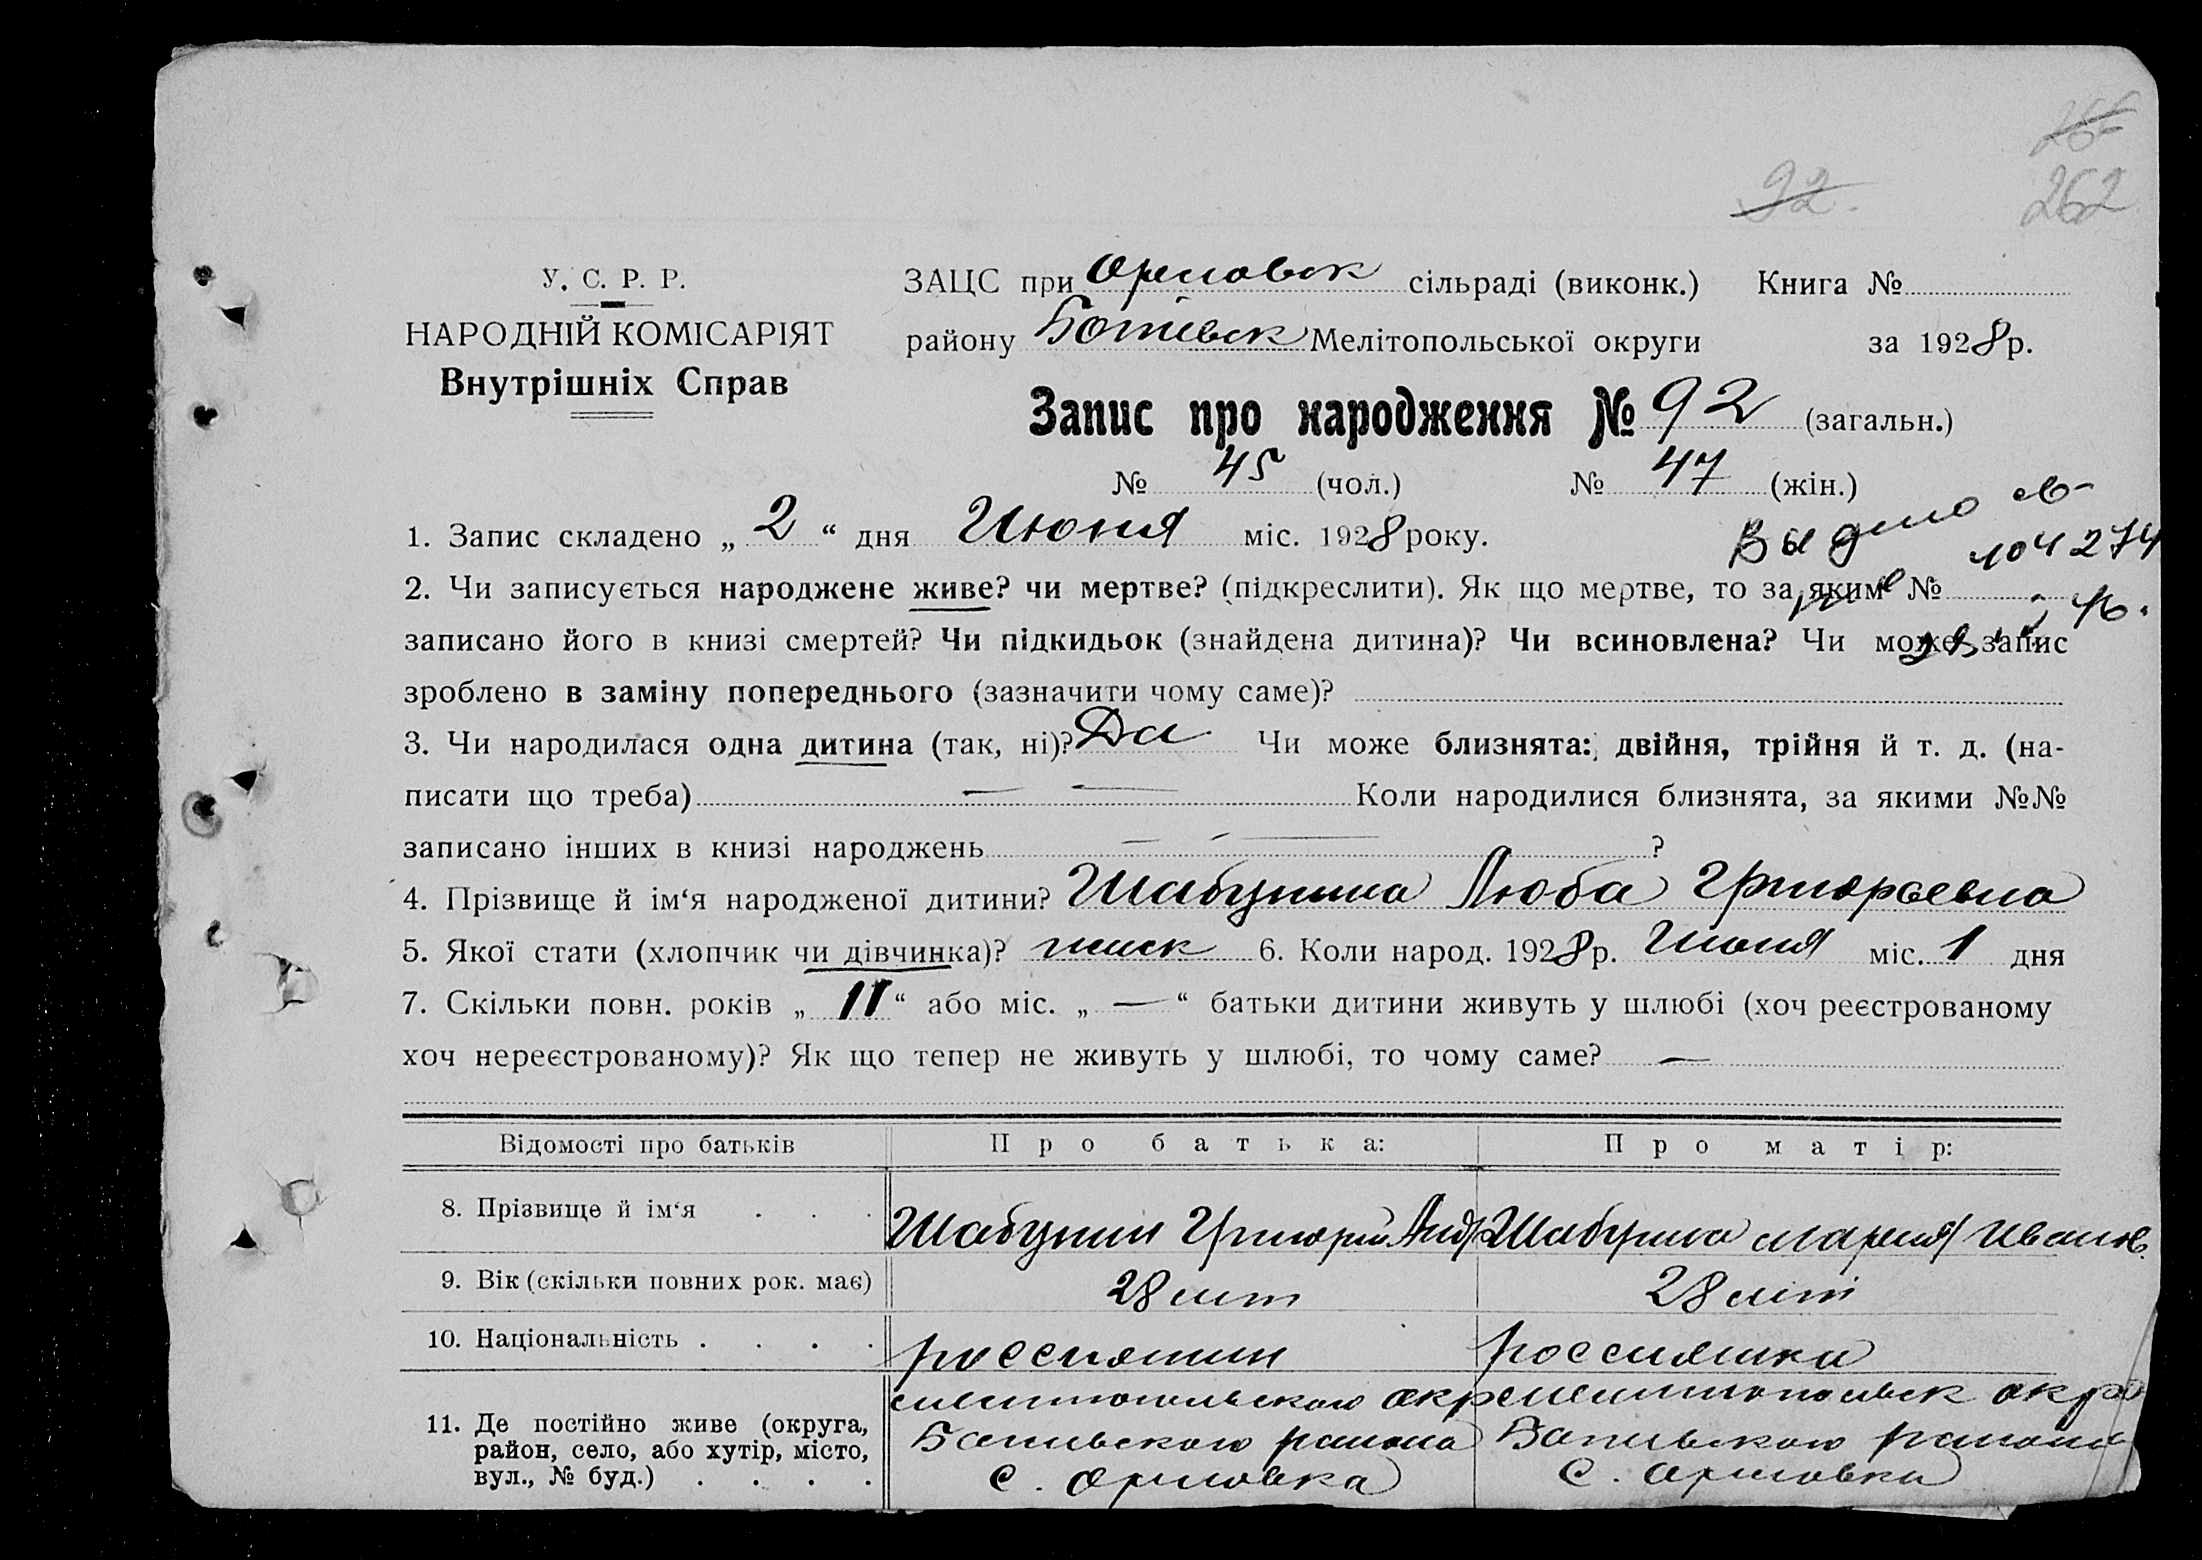 262
92.
У. С. Р. Р.
НАРОДНІЙ КОМІСАРІЯТ
Внутрішніх Справ
ЗАЦС при Орловск сільраді (виконк.) Книга №
району Ботіевск Мелітопольської округи за 1928 р.
Запис про народження № 92 (загальн.)
№ 45 (чол.) № 47 (жін.)
1. Запис складено „ 2 “ дня Июня міс. 1928 року.
Выдано св-
104274
2. Чи записується народжене живе? чи мертве? (підкреслити). Як що мертве, то за яким №
записано його в книзі смертей? Чи підкидьок (знайдена дитина)? Чи всиновлена? Чи може запис
зроблено в заміну попереднього (зазначити чому саме)?
3. Чи народилася одна дитина (так, ні)? Да Чи може близнята: двійня, трійня й т. д. (на-
писати що треба) — — Коли народилися близнята, за якими №№
записано інших в книзі народжень — — ?
4. Прізвище й ім‘я народженої дитини? Шабунина Люба Григорьевна
5. Якої стати (хлопчик чи дівчинка)? женск 6. Коли народ. 1928 р. Июня міс. 1 дня
7. Скільки повн. років „ 11 “ або міс. „ — “ батьки дитини живуть у шлюбі (хоч реєстрованому
хоч нереєстрованому)? Як що тепер не живуть у шлюбі, то чому саме? —
Відомості про батьків Про батька: Про матір:
8. Прізвище й ім‘я . . . Шабунин Григорий Андр Шабунина Мария Иванов.
9. Вік (скільки повних рок. має) 28 лет 28 лет
10. Національність . . . . россиянин россиянка
11. Де постійно живе (округа, Мелитопольского окр Мелитопольск окр
район, село, або хутір, місто, Ботиевского района Ботиевского района
вул., № буд.) . . . . с. Орловка с. Орловка